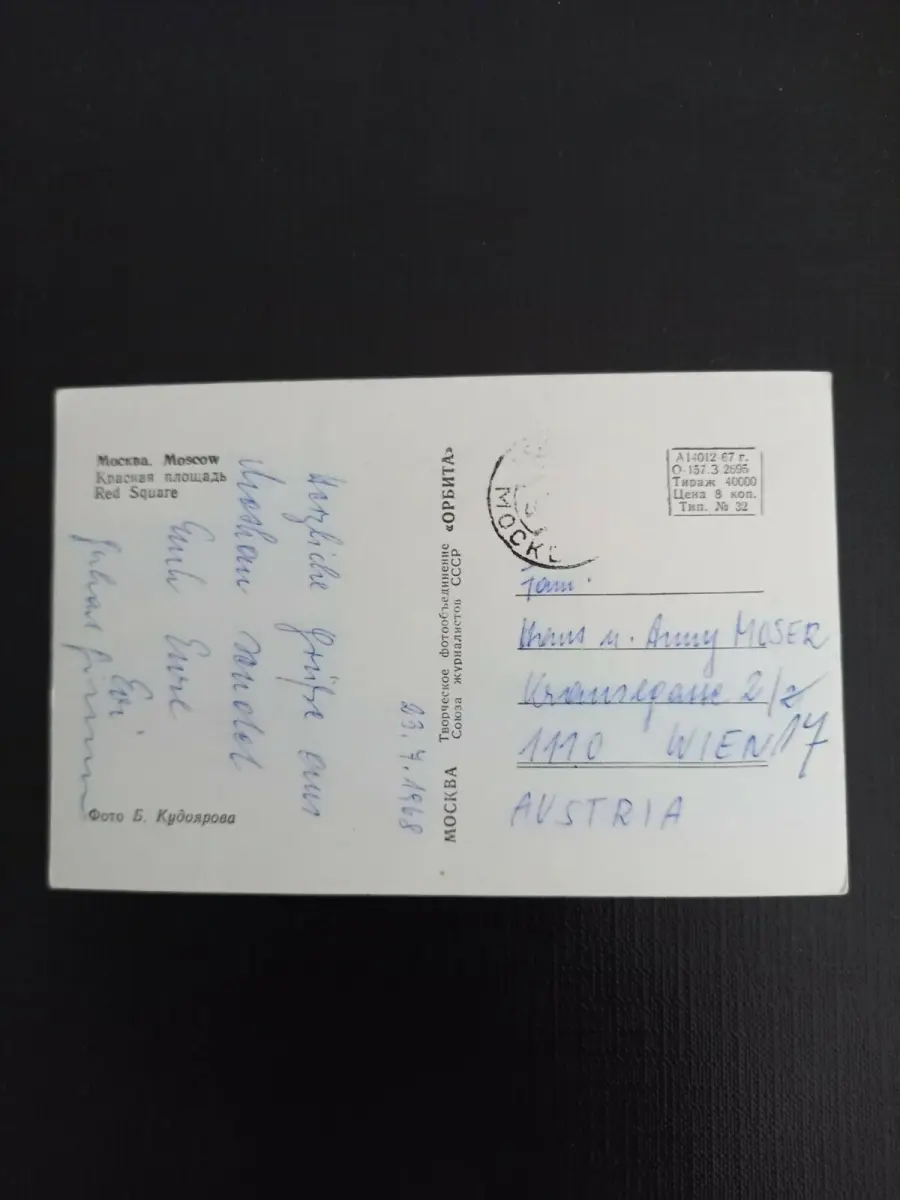 Москва. Moscow
Красная площадь
Red Square
23.7.1968
Herzliche Grüße aus
Moskau sendet
Euch Eure
Evi
Фото Б. Кудоярова
МОСКВА
Творческое фотообъединение
Союза журналистов СССР
«ОРБИТА»
МОСКВ
А14012 67 г.
О-157.З.2695
Тираж 40000
Цена 8 коп.
Тип. № 32
Fam.
u. Anny MOSER
2/2
1110 WIEN 17
AUSTRIA